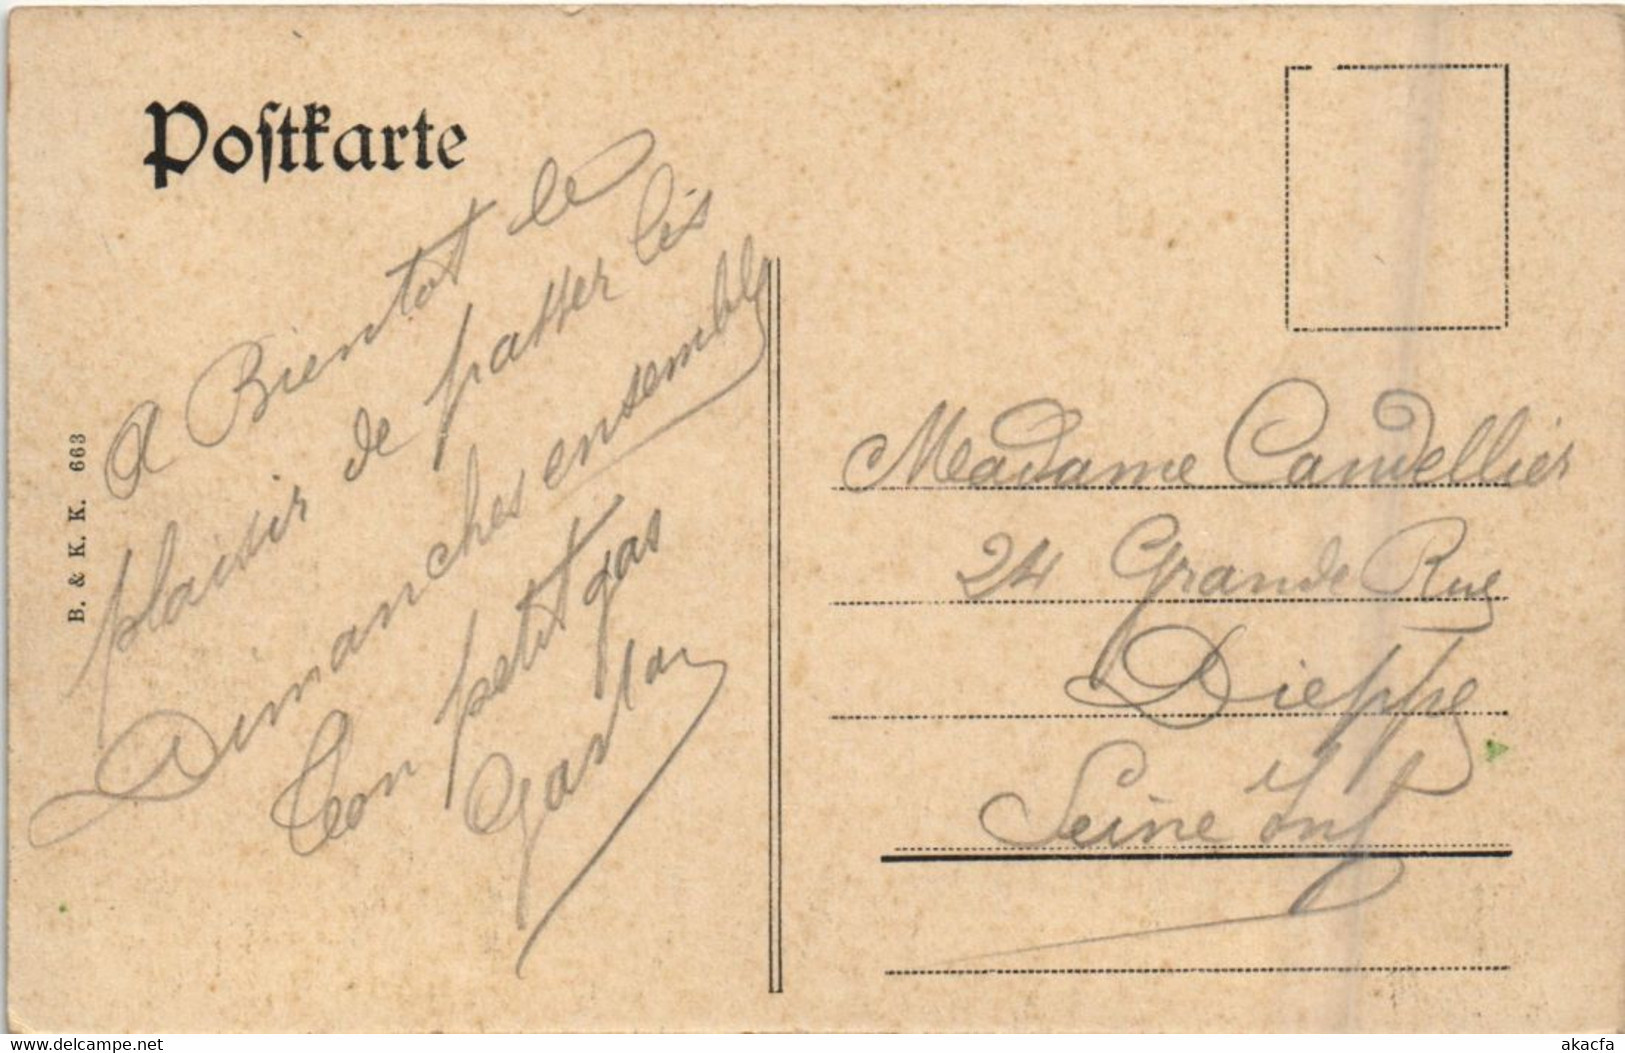 Postkarte
A Bientot le
plaisir de passer les
Dimanches ensemble
Ton petit gas
Gaston
B. & K. K. 663
Madame Candellier
24 Grande Rue
Dieppe
Seine inf
www.delcampe.net
akacfa